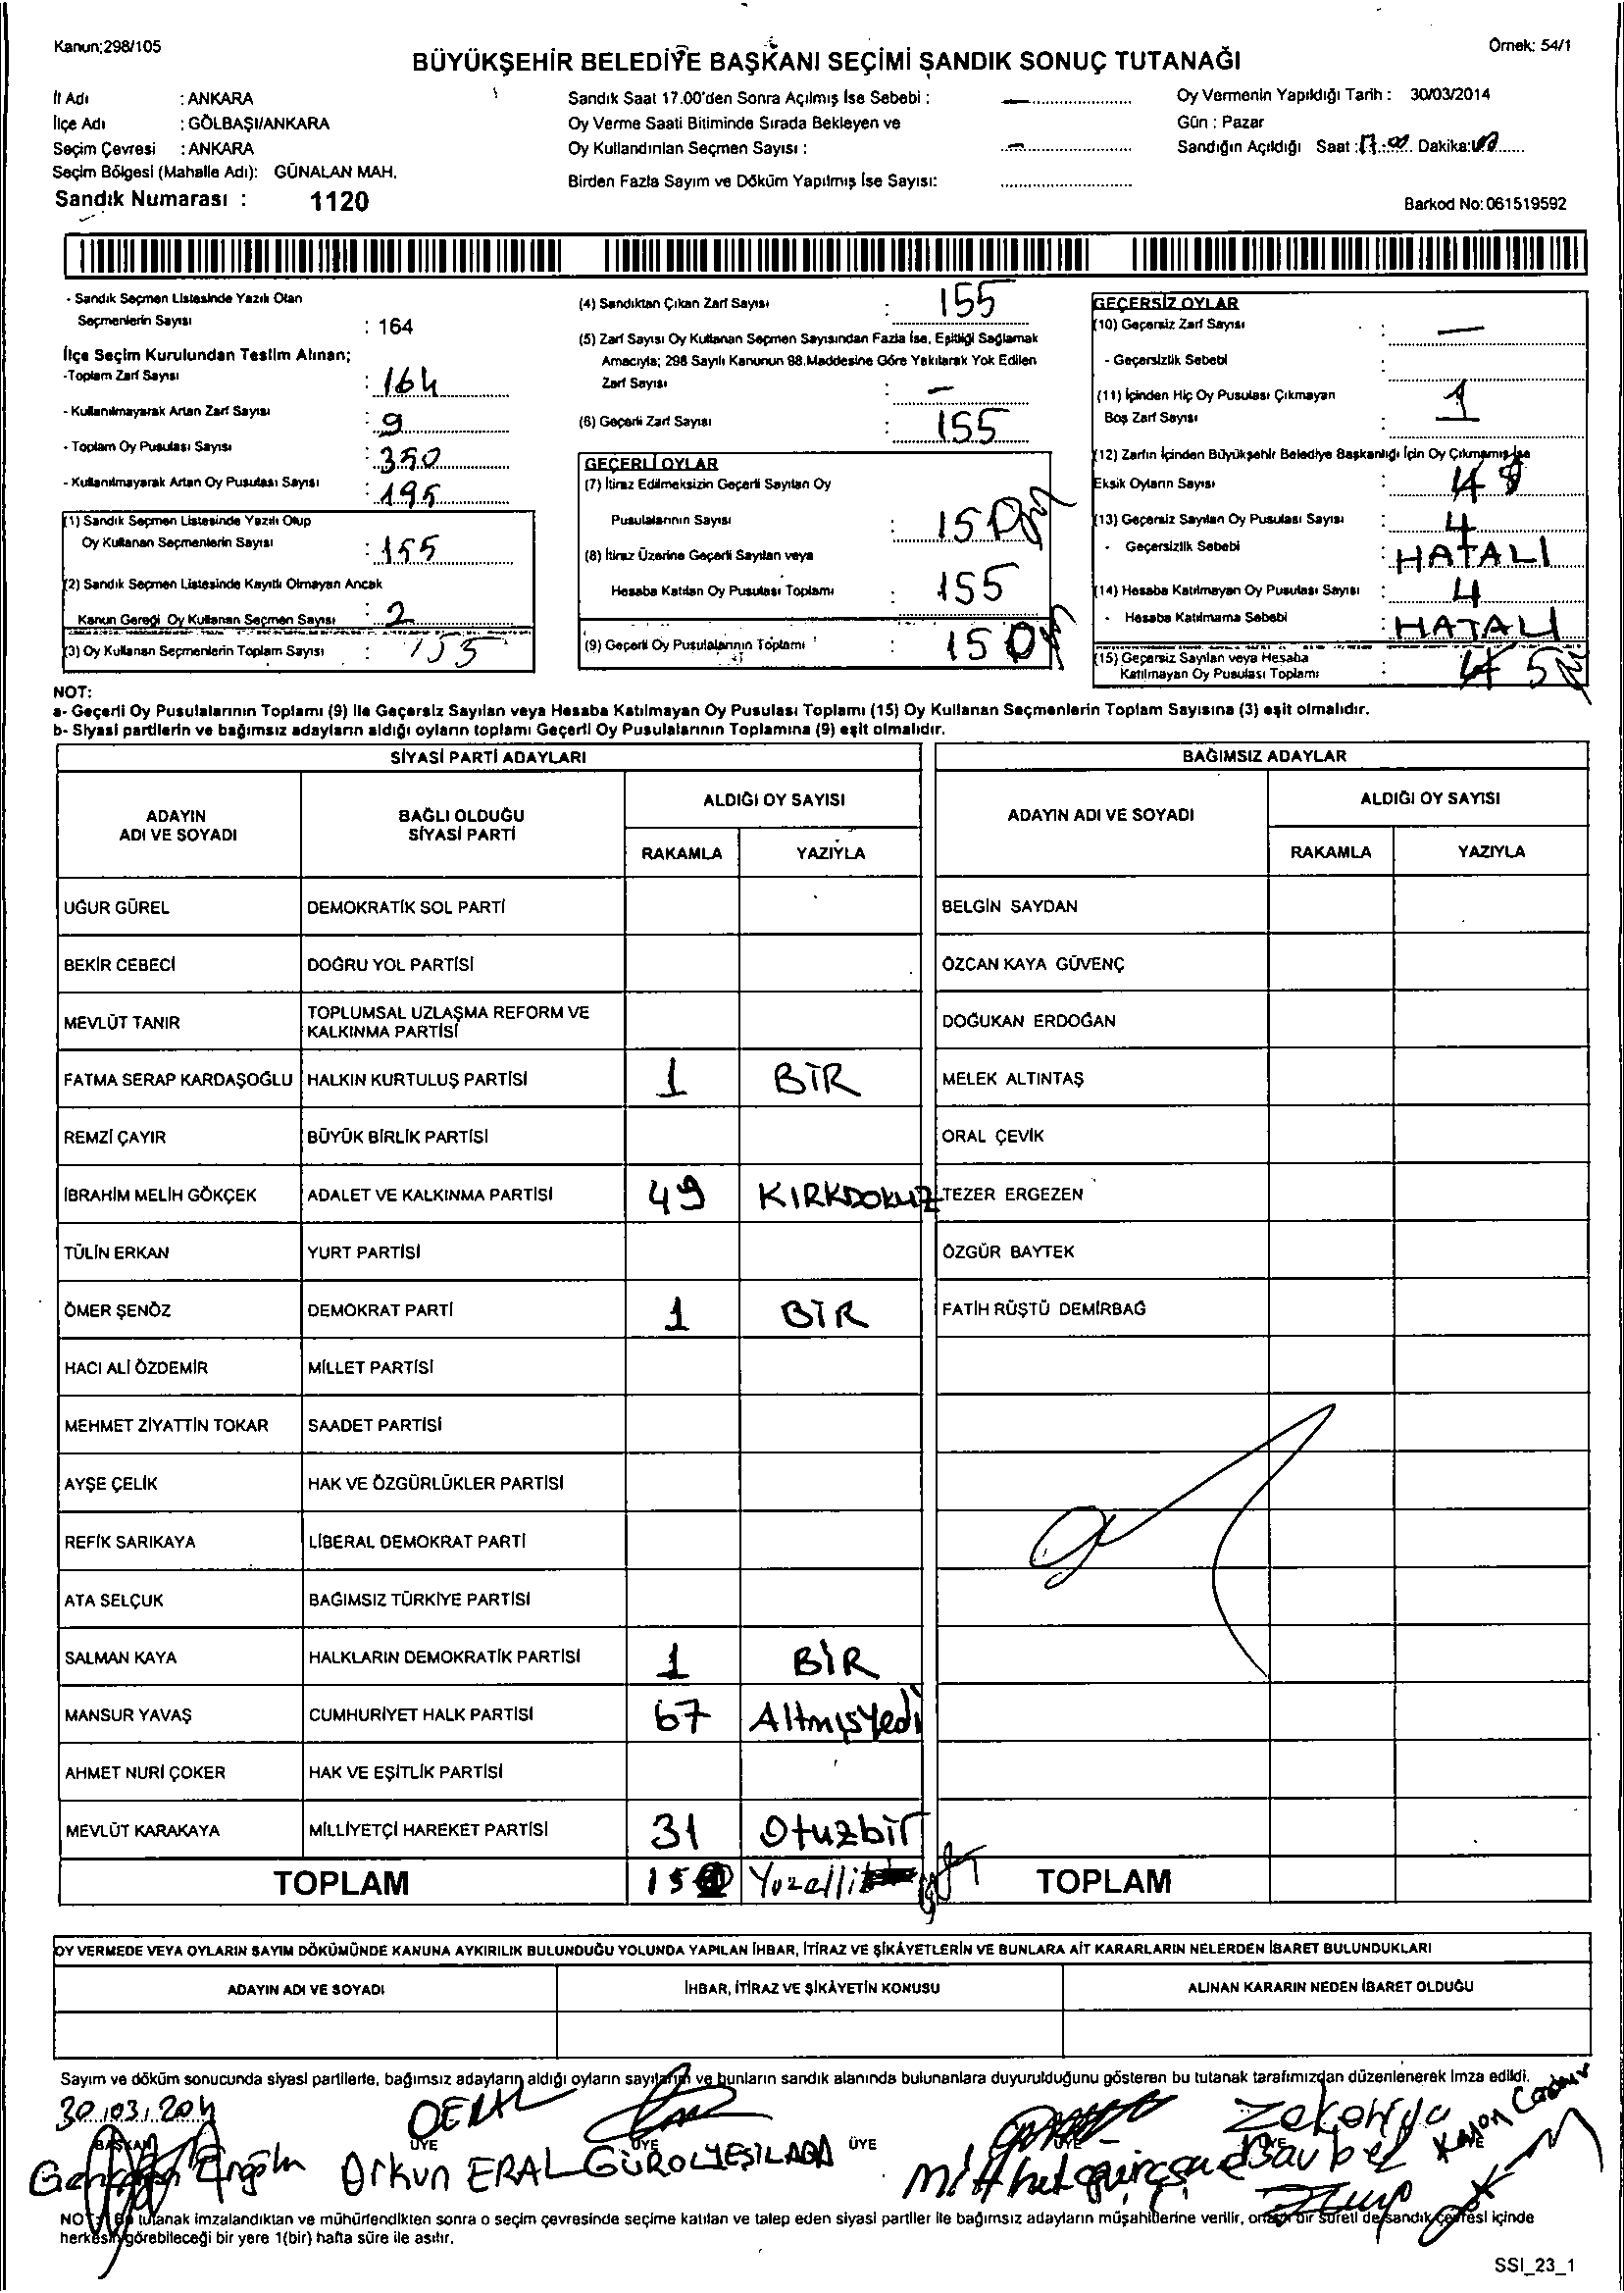 Kanun;298/105
Örnek: 54/1
BÜYÜKŞEHİR BELEDİYE BAŞKANI SEÇİMİ SANDIK SONUÇ TUTANAĞI
İl Adı : ANKARA
İlçe Adı : GÖLBAŞI/ANKARA
Seçim Çevresi : ANKARA
Seçim Bölgesi (Mahalle Adı): GÜNALAN MAH.
Sandık Numarası : 1120
Sandık Saat 17.00'den Sonra Açılmış İse Sebebi : —
Oy Verme Saati Bitiminde Sırada Bekleyen ve
Oy Kullandırılan Seçmen Sayısı : —
Birden Fazla Sayım ve Döküm Yapılmış İse Sayısı:
Oy Vermenin Yapıldığı Tarih : 30/03/2014
Gün : Pazar
Sandığın Açıldığı Saat : 17:00 Dakika:
Barkod No: 061519592
- Sandık Seçmen Listesinde Yazılı Olan
Seçmenlerin Sayısı : 164
İlçe Seçim Kurulundan Teslim Alınan;
-Toplam Zarf Sayısı : 164
- Kullanılmayarak Artan Zarf Sayısı : 9
- Toplam Oy Pusulası Sayısı : 350
- Kullanılmayarak Artan Oy Pusulası Sayısı : 195
(1) Sandık Seçmen Listesinde Yazılı Olup
Oy Kullanan Seçmenlerin Sayısı : 155
(2) Sandık Seçmen Listesinde Kayıtlı Olmayan Ancak
Kanun Gereği Oy Kullanan Seçmen Sayısı : 2
(3) Oy Kullanan Seçmenlerin Toplam Sayısı : 155
(4) Sandıktan Çıkan Zarf Sayısı : 155
(5) Zarf Sayısı Oy Kullanan Seçmen Sayısından Fazla İse, Eşitliği Sağlamak
Amacıyla; 298 Sayılı Kanunun 98.Maddesine Göre Yakılarak Yok Edilen
Zarf Sayısı : —
(6) Geçerli Zarf Sayısı : 155
GEÇERLİ OYLAR
(7) İtiraz Edilmeksizin Geçerli Sayılan Oy
Pusulalarının Sayısı : 150
(8) İtiraz Üzerine Geçerli Sayılan veya
Hesaba Katılan Oy Pusulası Toplamı : 155
(9) Geçerli Oy Pusulalarının Toplamı : 150
GEÇERSİZ OYLAR
(10) Geçersiz Zarf Sayısı : —
- Geçersizlik Sebebi :
(11) İçinden Hiç Oy Pusulası Çıkmayan
Boş Zarf Sayısı : 1
(12) Zarfın İçinden Büyükşehir Belediye Başkanlığı İçin Oy Çıkmamış İse
Eksik Oyların Sayısı :
(13) Geçersiz Sayılan Oy Pusulası Sayısı : 4
- Geçersizlik Sebebi : HATALI
(14) Hesaba Katılmayan Oy Pusulası Sayısı : 4
- Hesaba Katılmama Sebebi : HATALI
(15) Geçersiz Sayılan veya Hesaba
Katılmayan Oy Pusulası Toplamı : 5
NOT:
a- Geçerli Oy Pusulalarının Toplamı (9) ile Geçersiz Sayılan veya Hesaba Katılmayan Oy Pusulası Toplamı (15) Oy Kullanan Seçmenlerin Toplam Sayısına (3) eşit olmalıdır.
b- Siyasi partilerin ve bağımsız adayların aldığı oyların toplamı Geçerli Oy Pusulalarının Toplamına (9) eşit olmalıdır.
SİYASİ PARTİ ADAYLARI
BAĞIMSIZ ADAYLAR
ADAYIN ADI VE SOYADI
BAĞLI OLDUĞU SİYASİ PARTİ
ALDIĞI OY SAYISI
RAKAMLA YAZIYLA
ADAYIN ADI VE SOYADI
ALDIĞI OY SAYISI
RAKAMLA YAZIYLA
UĞUR GÜREL DEMOKRATİK SOL PARTİ BELGİN SAYDAN
BEKİR CEBECİ DOĞRU YOL PARTİSİ ÖZCAN KAYA GÜVENÇ
MEVLÜT TANIR TOPLUMSAL UZLAŞMA REFORM VE KALKINMA PARTİSİ DOĞUKAN ERDOĞAN
FATMA SERAP KARDAŞOĞLU HALKIN KURTULUŞ PARTİSİ 1 BİR MELEK ALTINTAŞ
REMZİ ÇAYIR BÜYÜK BİRLİK PARTİSİ ORAL ÇEVİK
İBRAHİM MELİH GÖKÇEK ADALET VE KALKINMA PARTİSİ 49 KIRKDOKUZ TEZER ERGEZEN
TÜLİN ERKAN YURT PARTİSİ ÖZGÜR BAYTEK
ÖMER ŞENÖZ DEMOKRAT PARTİ 1 BİR FATİH RÜŞTÜ DEMİRBAĞ
HACI ALİ ÖZDEMİR MİLLET PARTİSİ
MEHMET ZİYATTİN TOKAR SAADET PARTİSİ
AYŞE ÇELİK HAK VE ÖZGÜRLÜKLER PARTİSİ
REFİK SARIKAYA LİBERAL DEMOKRAT PARTİ
ATA SELÇUK BAĞIMSIZ TÜRKİYE PARTİSİ
SALMAN KAYA HALKLARIN DEMOKRATİK PARTİSİ 1 BİR
MANSUR YAVAŞ CUMHURİYET HALK PARTİSİ 67 Altmışyedi
AHMET NURİ ÇOKER HAK VE EŞİTLİK PARTİSİ
MEVLÜT KARAKAYA MİLLİYETÇİ HAREKET PARTİSİ 31 Otuzbir
TOPLAM 150 Yüzelli TOPLAM
OY VERMEDE VEYA OYLARIN SAYIM DÖKÜMÜNDE KANUNA AYKIRILIK BULUNDUĞU YOLUNDA YAPILAN İHBAR, İTİRAZ VE ŞİKÂYETLERİN VE BUNLARA AİT KARARLARIN NELERDEN İBARET BULUNDUKLARI
ADAYIN ADI VE SOYADI İHBAR, İTİRAZ VE ŞİKÂYETİN KONUSU ALINAN KARARIN NEDEN İBARET OLDUĞU
Sayım ve döküm sonucunda siyasi partilerle, bağımsız adayların aldığı oyların sayılarını ve bunların sandık alanında bulunanlara duyurulduğunu gösteren bu tutanak tarafımızdan düzenlenerek imza edildi.
30.03.2014
BAŞKAN ÜYE ÜYE ÜYE ÜYE ÜYE
Orkun ERAL GÜROL YEŞİLADA Zekeriya
NOT: Bu tutanak imzalandıktan ve mühürlendikten sonra o seçim çevresinde seçime katılan ve talep eden siyasi partiler ile bağımsız adayların müşahitlerine verilir, onaylı bir sureti de sandık çevresi içinde
herkesin görebileceği bir yere 1(bir) hafta süre ile asılır.
SSI_23_1